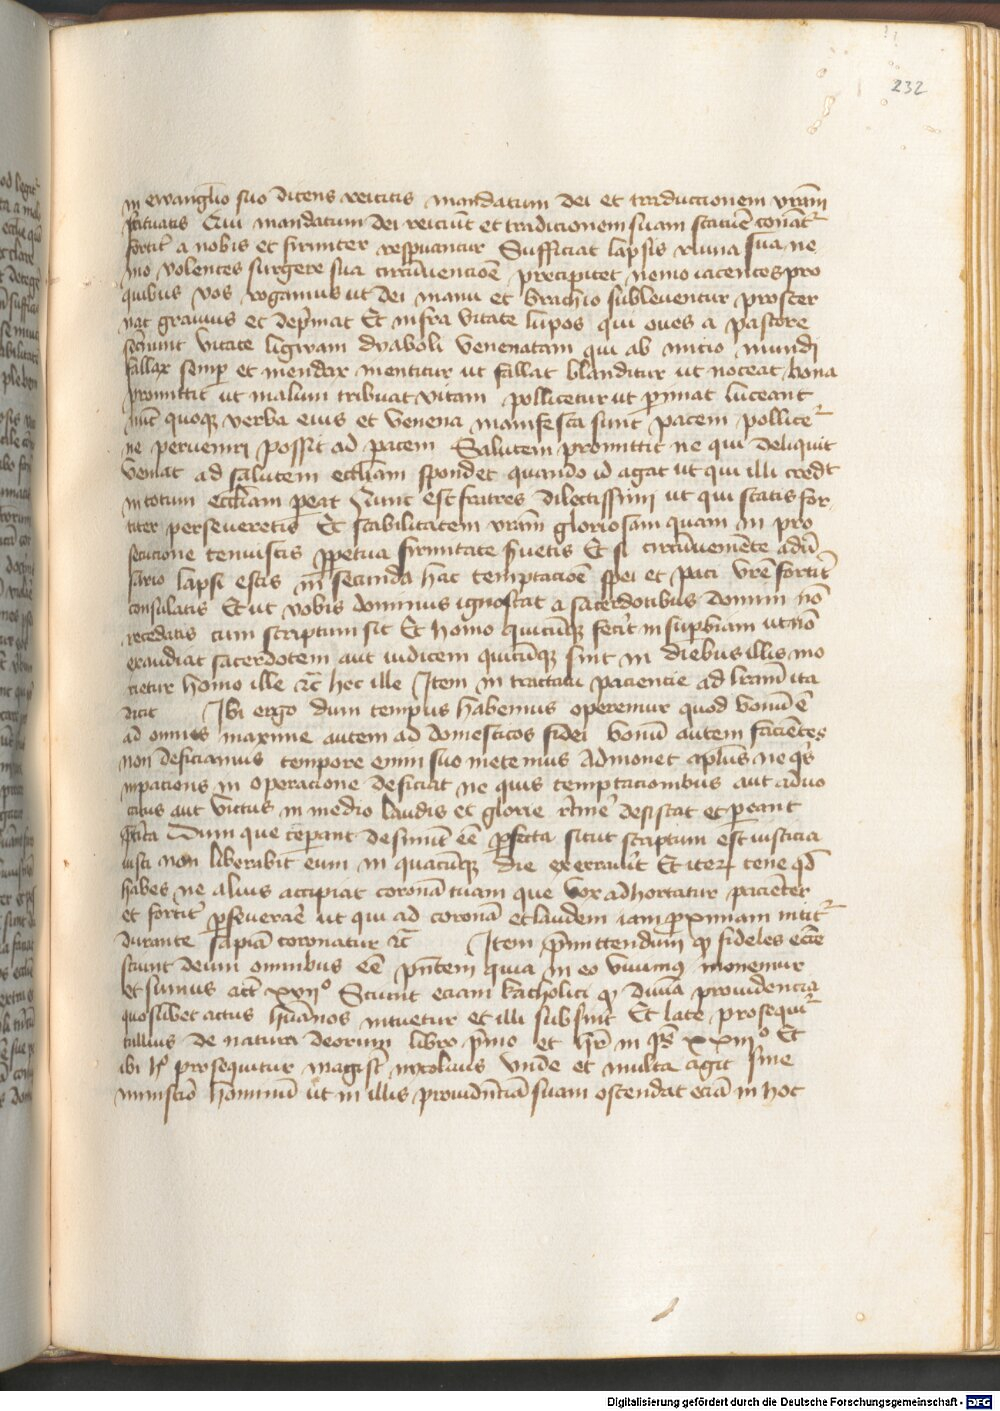 232
in ewanglio suo dicens reicitis mandatum dei et traductionem vram̄
statuatis Qui mandatum dei reiciūt et tradicionem suam statuē conāt᷑
fortit᷑ a nobis et firmiter respuantur Sufficiat lapsis ruina sua ne
mo volentes surgere sua circūvencioē precipitet nemo iacentes pro
quibus vos rogamus ut dei manu et brachio subleventur proster
nat gravius et dep̄mat Et infra vitate lupos qui oves a pastore
sec̄nunt vitate ligwam dyaboli venenatam qui ab inicio mundi
fallax semp̄ et mendax mentitur ut fallat blanditur ut noceat bona
promittit ut malum tribuat vitam pollicetur ut p̄imat luceant
nūc quoq̨ verba eius et venena manifesta sunt pacem pollicet᷑
ne perveniri possit ad pacem Salutem promittit ne qui deliquit
veniat ad salutem eccliam spondet quando id agat ut qui illi credt
in totum eccliam p̄eat Nunc est fratres dilectissimi ut qui statis for
titer perseveretis Et stabilitatem vram̄ gloriosam quam in pro
secucione tenuistis p̄petua firmitate s̄uetis Et si circūveniēte adū
sario lapsi estis in secunda hac temptacioē spei et paci vrē fortit᷑
consulatis Et ut vobis dominus ignoscat a sacerdotibus domini nō
recedatis cum scriptum sit Et homo quicūq̨ fecit᷑ in sup̄biam ut nō
exaudiat sacerdotem aut iudicem quicūq̨ sint in diebus illis mo
rietur homo ille ⁊c̄ hec ille Item in tractatu paciencie ad lram̄ ita
dicit Ibi ergo dum tempus habemus operemur quod bonū ē
ad omnes maxime autem ad domesticos fidei bonū autem faciētes
non deficiamus tempore enim suo metemus Admonet aplūs ne q̄s
inpaciens in operacione deficiat ne quis temptacionibus aut advo
catus aut victus in medio laudis et glorie itinē desistat et p̄eant
p̄tīta Dum que cep̄ant desinūt eē p̄fecta sicut scriptum est iusticia
iusti non liberabit eum in quacūq̨ die exerrav̄it Et iter̄ tene qd̄
habes ne alius accipiat coronā tuam que vox adhortatur pacient̄er
et fortit᷑ p̄severaē ut qui ad coronā et laudem iam p̄ximam nitit᷑
durante sapiā coronatur ⁊c̄ Item p̄mittendum q̨ fideles ecc̄e
sciunt deum omnibus eē p̄ntem quia in eo vivimus movemur
et sumus act̄ xvii° Sciunt eciam katholici q̨ diuīa providencia
quoslibet actus hūanos intuetur et illi subsint Et late prosequit᷑
tullius de natura deorum libro p̄mo et hr̄ in p̄s xxiii° Et
ibi h° prosequitur magist᷑ nicolaus Unde et multa agit sine
ministīo hominū ut in illis providn̄ciā suam ostendat eciā in hoc
Digitalisierung gefördert durch die Deutsche Forschungsgemeinschaft - DFG